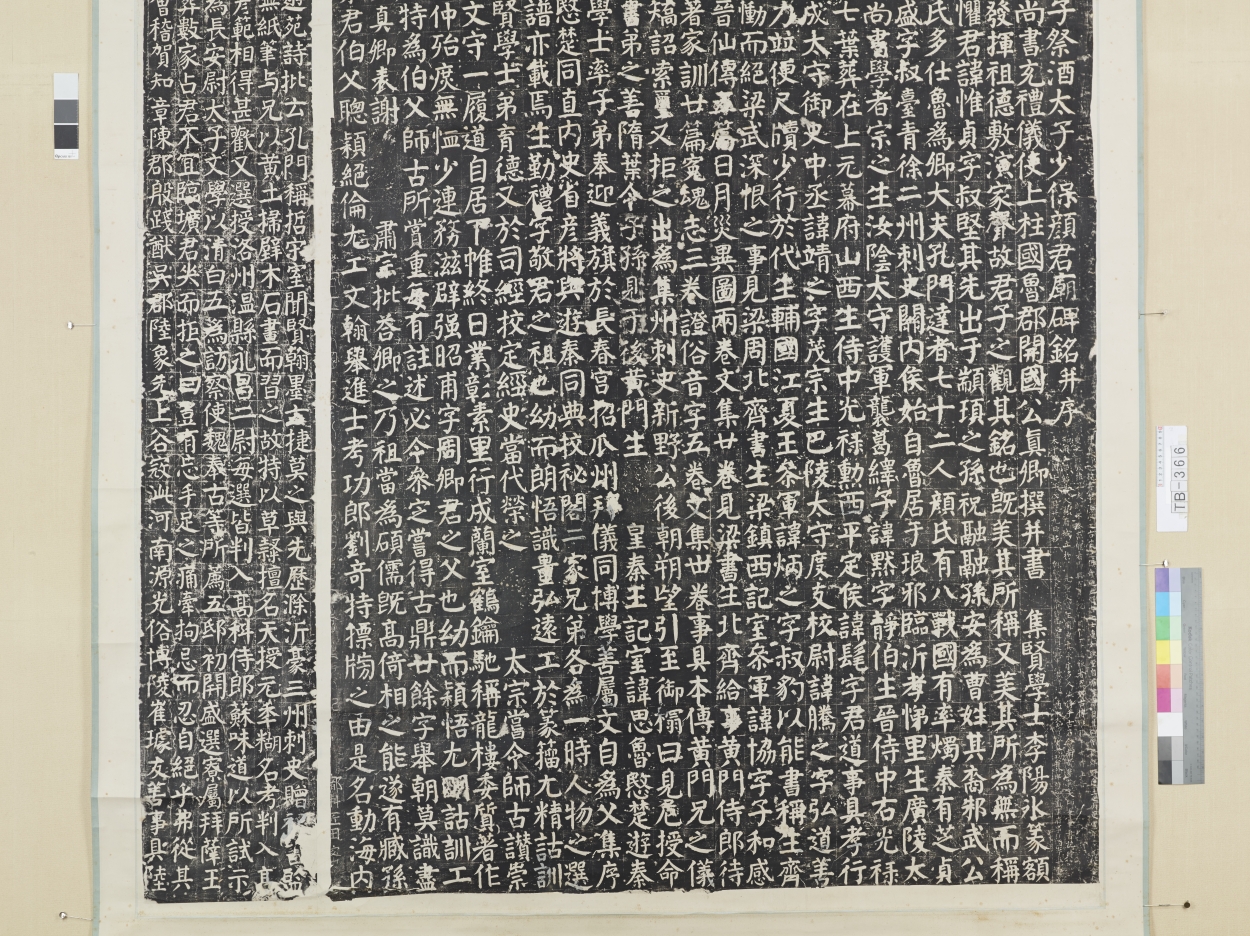 子祭酒太子少保顏君廟碑銘并序
尚書充禮儀使上柱國魯郡開國公真卿撰并書 集賢學士李陽冰篆額
發揮祖德敷演家聲故君子之觀其銘也既美其所稱又美其所為無而稱
懼君諱惟貞字叔堅其先出于顓頊之孫祝融融孫安為曹姓其裔邾武公
氏多仕魯為卿大夫孔門達者七十二人顏氏有八戰國有率燭秦有芝貞
盛字叔臺青徐二州刺史關內侯始自魯居于琅邪臨沂孝悌里生廣陵太
尚書學者宗之生汝陰太守護軍襲葛繹子諱默字靜伯生晉侍中右光祿
七葉葬在上元幕府山西生侍中光祿勳西平定侯諱髦字君道事具孝行
成太守御史中丞諱靖之字茂宗生巴陵太守度支校尉諱騰之字弘道善
力並便尺牘少行於代生輔國江夏王參軍諱炳之字叔豹以能書稱生齊
慟而絕梁武深恨之事見梁周北齊書生梁鎮西記室參軍諱協字子和感
晉仙傳五篇日月災異圖兩卷文集廿卷見梁書生北齊給事黃門侍郎待
著家訓廿篇冤魂志三卷證俗音字五卷文集卅卷事具本傳黃門兄之儀
矯詔索璽又拒之出為集州刺史新野公後朝朔望引至御榻曰見危授命
書弟之善隋葉令子孫見于後黃門生 皇秦王記室諱思魯愍楚遊秦
學士率子弟奉迎義旗於長春宮招瓜州拜儀同博學善屬文自為父集序
愍楚同直內史省彥將與遊秦同典校祕閣二家兄弟各為一時人物之選
譜亦載焉生勤禮字敬君之祖也幼而朗悟識量弘遠工於篆籀尤精詁訓
賢學士弟育德又於司經校定經史當代榮之 太宗嘗令師古讚崇
文守一履道自居下帷終日業彰素里行成蘭室鶴鑰馳稱龍樓委質著作
仲殆庶無慍少連務滋辟强昭甫字周卿君之父也幼而穎悟尤明詁訓工
特為伯父師古所賞重每有註述必令參定嘗得古鼎廿餘字舉朝莫識盡
真卿表謝 肅宗批荅卿之乃祖當為碩儒既高倚相之能遂有臧孫
君伯父聰穎絕倫尤工文翰舉進士考功郎劉奇特摽牓之由是名動海內
遊苑詩批云孔門稱哲宋室聞賢翰墨云捷莫之與先歷滁沂豪三州刺史贈祕書監
無紙筆与兄以黃土掃壁木石畫而習之故特以草隸擅名天授元年糊名考判入
彥範相得甚歡又選授洛州溫縣永昌二尉每選皆判入高科侍郎蘇味道以所試示
為長安尉太子文學以清白五為訪察使魏奉古等所薦五邸初開盛選寮屬拜薛王
算數家占君不宜臨壙君哭而拒之曰豈有忘手足之痛牽拘忌而忍自絕乎弗從其
會稽賀知章陳郡殷踐猷吳郡陸象先上谷寇泚河南源光俗博陵崔璩友善事具陸
TB-366